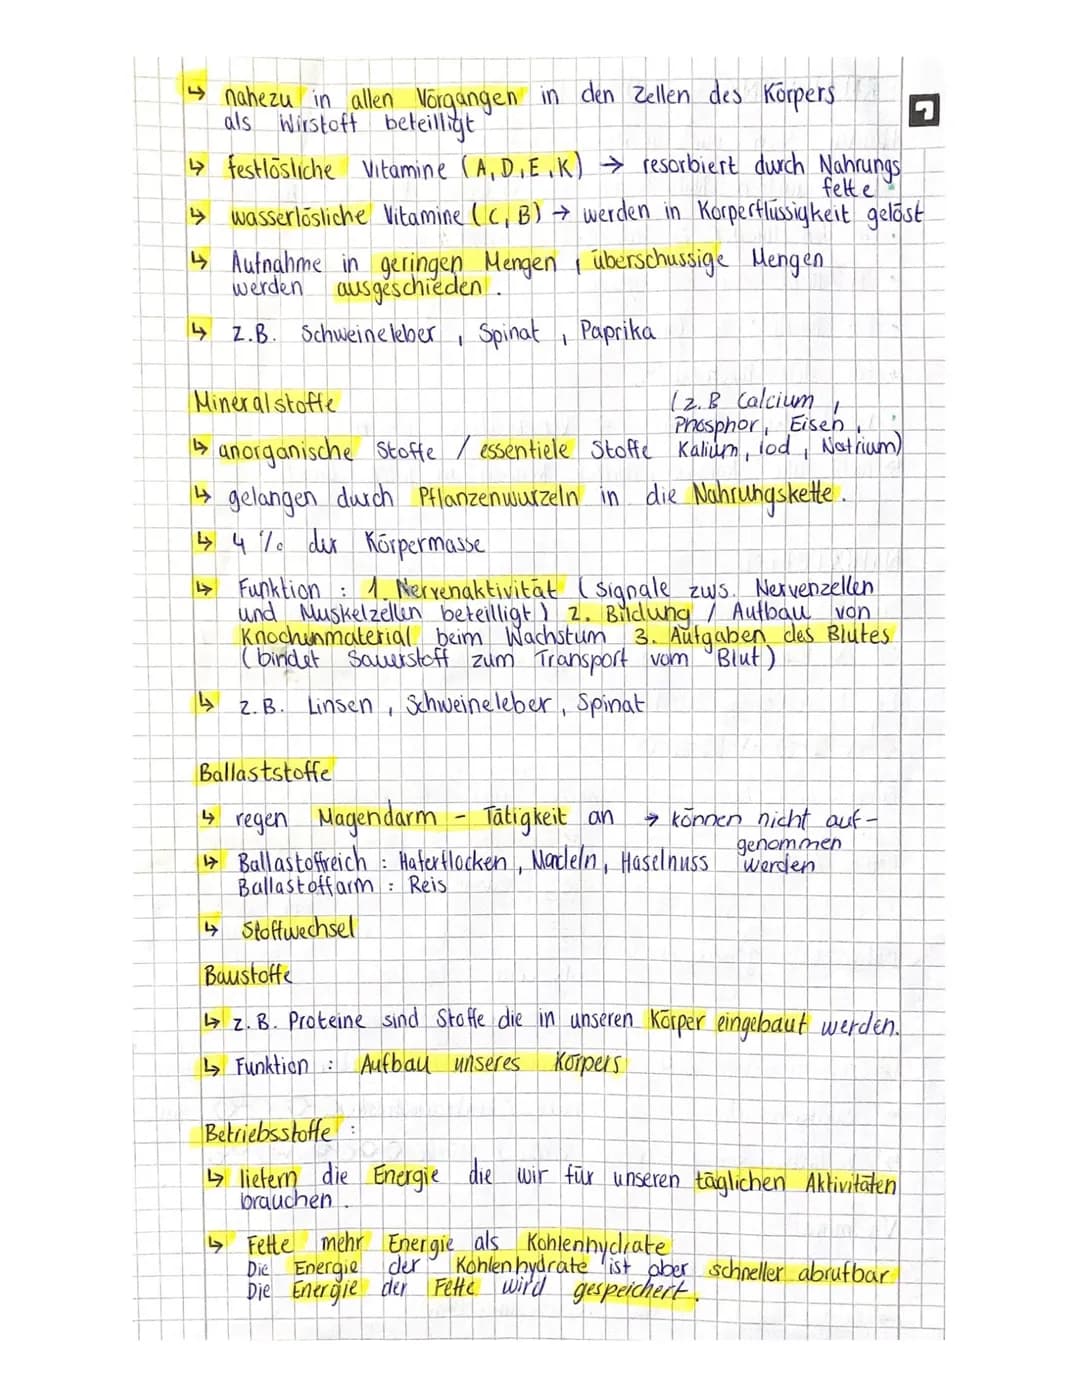 ↳ nahezu in allen Vorgangen in den Zellen des Körpers
als Wirstoff beteilligt
↳ festlösliche Vitamine (A, D, E, K) → resorbiert durch Nahrungs
fette
↳ wasserlösliche Vitamine (C, B) → werden in Korperflüssigkeit gelöst
↳ Aufnahme in geringen Mengen, überschussige Mengen
werden ausgeschieden.
↳ z.B. Schweineleber, Spinat, Paprika
Mineralstoffe
(z.B Calcium,
Phosphor, Eisen,
↳ anorganische Stoffe / essentiele Stoffe Kalium, iod, Natrium)
↳ gelangen durch Pflanzenwurzeln in die Nahrungskette.
↳ 4% der Körpermasse
↳ Funktion : 1. Nervenaktivität (signale zws. Nervenzellen
und Muskelzellen beteilligt) 2. Bildung / Aufbau von
Knochenmaterial beim Wachstum 3. Aufgaben des Blutes
(bindet Sauerstoff zum Transport vom Blut)
↳ z.B. Linsen, Schweineleber, Spinat
Ballaststoffe
↳ regen Magendarm - Tätigkeit an → können nicht auf-
genommen
↳ Ballastoffreich : Haferflocken, Nadeln, Haselnuss werden
Ballastoffarm : Reis
↳ Stoffwechsel
Baustoffe
↳ z.B. Proteine sind Stoffe die in unseren Körper eingebaut werden.
↳ Funktion : Aufbau unseres Körpers
Betriebsstoffe :
↳ liefern die Energie die wir für unseren täglichen Aktivitäten
brauchen.
↳ Fette mehr Energie als Kohlenhydrate
Die Energie der Kohlenhydrate ist aber schneller abrufbar
Die Energie der Fette wird gespeichert.